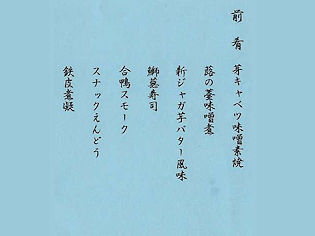 前肴 芽キャベツ味噌素焼
蕗の薹味噌煮
新ジャガ芋バター風味
鰤葱寿司
合鴨スモーク
スナックえんどう
鉄皮煮凝